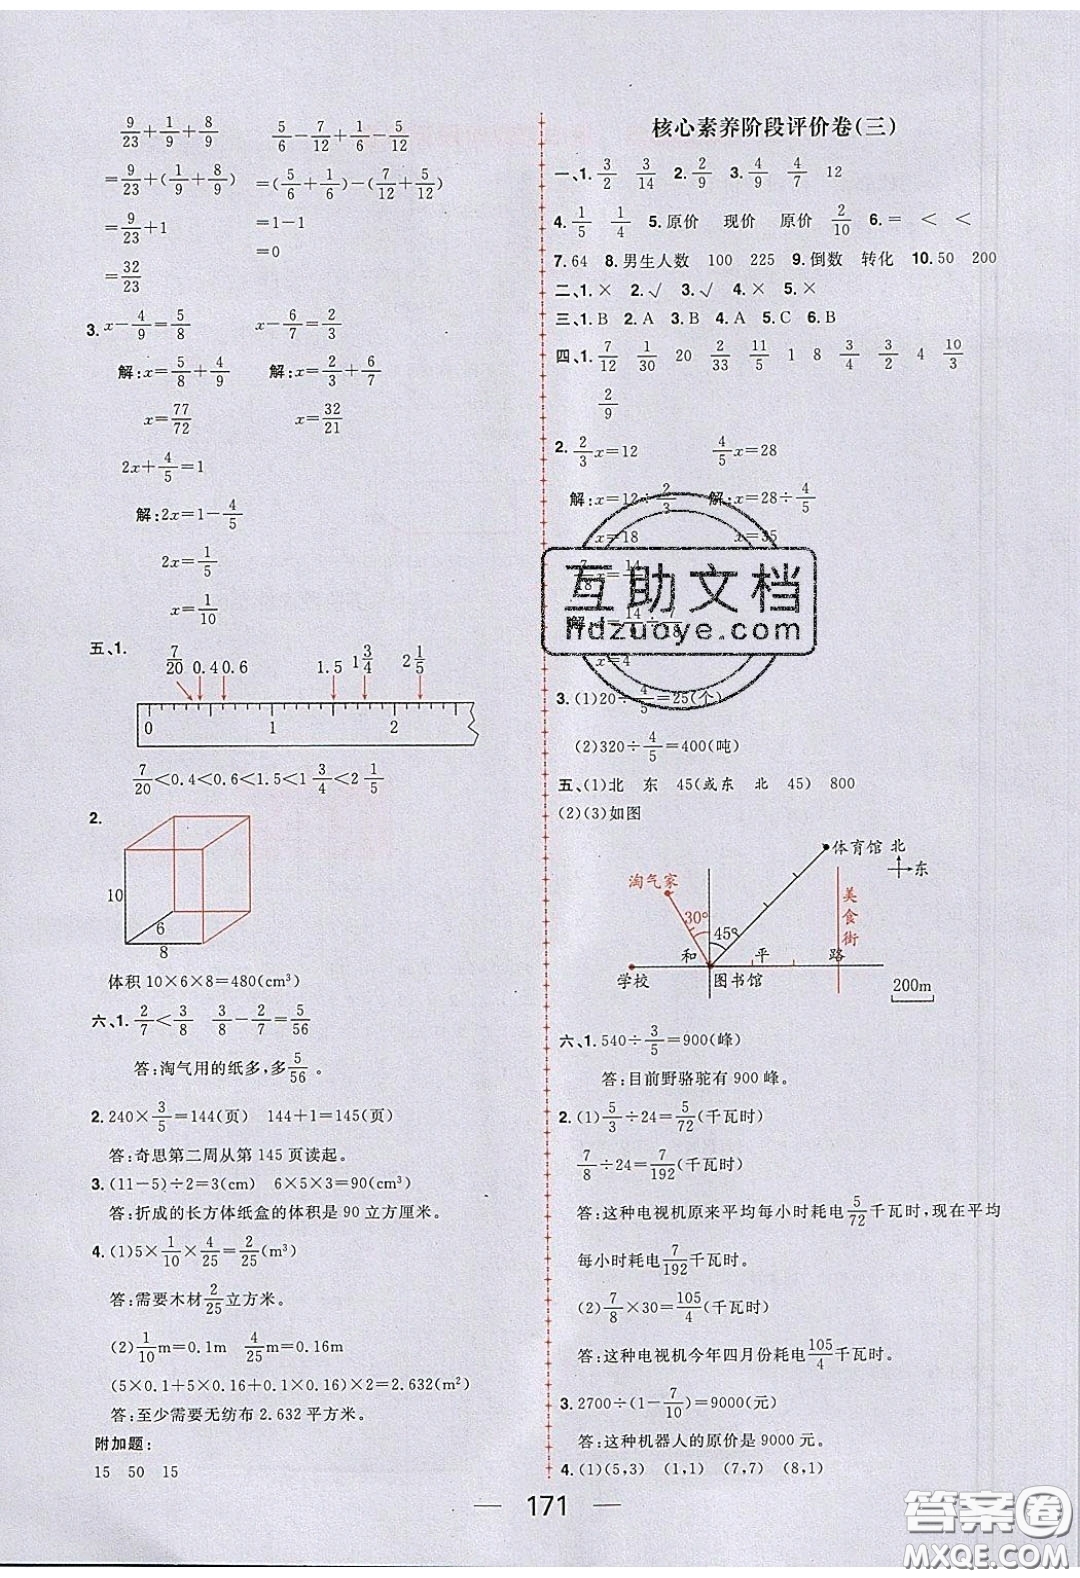 9/23+1/9+8/9    5/6-7/12+1/6-5/12
=9/23+(1/9+8/9)    =(5/6+1/6)-(7/12+5/12)
=9/23+1    =1-1
=32/23    =0
3. x-4/9=5/8    x-6/7=2/3
解:x=5/8+4/9    解:x=2/3+6/7
x=77/72    x=32/21
2x+4/5=1
解:2x=1-4/5
2x=1/5
x=1/10
五、1.
7/20 0.4 0.6 1.5 1 3/4 2 1/5
0 1 2
7/20<0.4<0.6<1.5<1 3/4<2 1/5
2.
10
6
8
体积10×6×8=480(cm³)
六、1. 2/7<3/8  3/8-2/7=5/56
答:淘气用的纸多,多5/56。
2. 240×3/5=144(页)  144+1=145(页)
答:奇思第二周从第145页读起。
3. (11-5)÷2=3(cm)  6×5×3=90(cm³)
答:折成的长方体纸盒的体积是90立方厘米。
4. (1)5×1/10×4/25=2/25(m³)
答:需要木材2/25立方米。
(2)1/10m=0.1m  4/25m=0.16m
(5×0.1+5×0.16+0.1×0.16)×2=2.632(m²)
答:至少需要无纺布2.632平方米。
附加题:
15 50 15
核心素养阶段评价卷(三)
一、1. 3/2  3/14  2. 2/9  3. 4/9  4/7  12
4. 1/5  1/4  5.原价 现价 原价 2/10  6.= < <
7.64  8.男生人数 100 225  9.倒数 转化  10.50 200
二、1.× 2.√ 3.√ 4.× 5.×
三、1.B 2.A 3.B 4.A 5.C 6.B
四、1. 7/12  1/30  20  2/33  11/5  1  8  3/4  3/2  4  10/3
2/9
2. 2/3x=12    4/5x=28
解:x=12÷2/3    解:x=28÷4/5
x=18    x=35
7/18x=14/
解  14  7/8
x=4
3. (1)20÷4/5=25(个)
(2)320÷4/5=400(吨)
五、(1)北 东 45(或东 北 45) 800
(2)(3)如图
体育馆 北
东
淘气家
美食街
30°
45°
和 平 路
学校 图书馆
200m
六、1. 540÷3/5=900(峰)
答:目前野骆驼有900峰。
2. (1)5/3÷24=5/72(千瓦时)
7/8÷24=7/192(千瓦时)
答:这种电视机原来平均每小时耗电5/72千瓦时,现在平均
每小时耗电7/192千瓦时。
(2)7/8×30=105/4(千瓦时)
答:这种电视机今年四月份耗电105/4千瓦时。
3. 2700÷(1-7/10)=9000(元)
答:这种机器人的原价是9000元。
4. (1)(5,3) (1,1) (7,7) (8,1)
171
互助文档
hdzuoye.com
答案圈
MXQE.COM